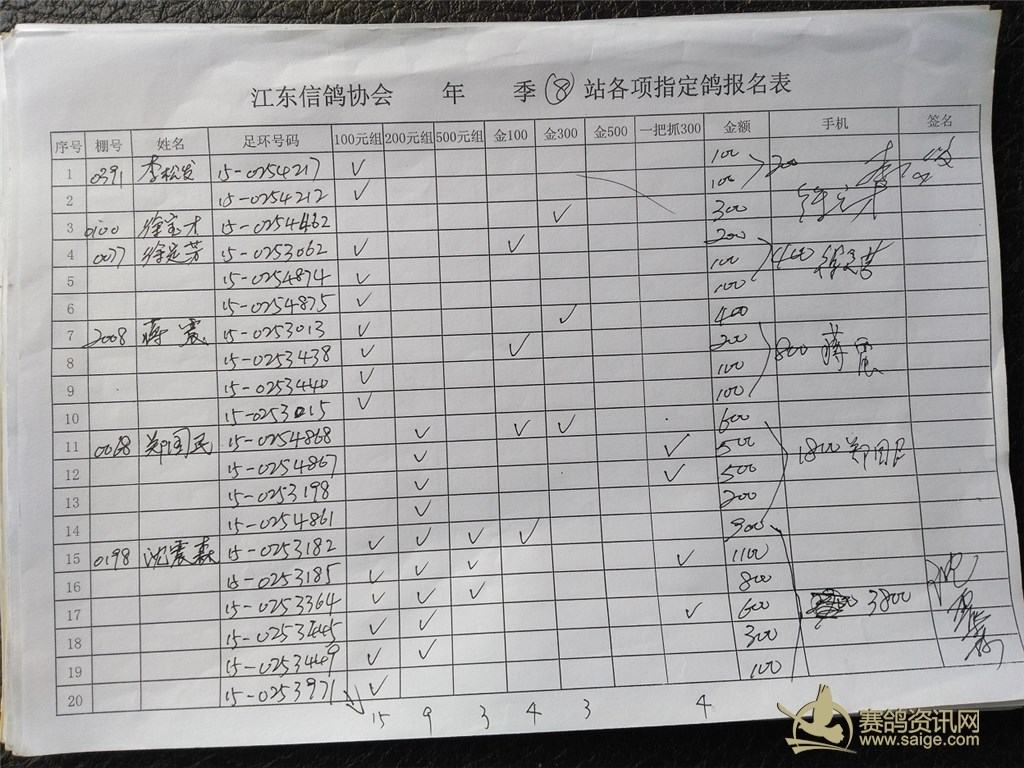 江东信鸽协会 年 季 ⑧ 站各项指定鸽报名表
序号 棚号 姓名 足环号码 100元组 200元组 500元组 金100 金300 金500 一把抓300 金额 手机 签名
1 0391 李松发 15-0254217 ✓ 100 200
2 15-0254212 ✓ 100
3 0100 徐宝才 15-0254462 ✓ 300 徐宝才
4 0077 徐定芳 15-0253062 ✓ ✓ 200
5 15-0254874 ✓ 100 400 徐定芳
6 15-0254875 ✓ 100
7 2008 蒋震 15-0253013 ✓ ✓ 400
8 15-0253438 ✓ ✓ 200 800 蒋震
9 15-0253440 ✓ 100
10 15-0253015 ✓ 100
11 0068 郑国民 15-0254868 ✓ ✓ ✓ 600
12 15-0254867 ✓ ✓ 500 1800 郑国民
13 15-0253198 ✓ ✓ 500
14 15-0254861 ✓ 200
15 0198 沈震森 15-0253182 ✓ ✓ ✓ ✓ 900
16 15-0253185 ✓ ✓ ✓ ✓ 1100
17 15-0253364 ✓ ✓ ✓ 800 3800
18 15-0253445 ✓ ✓ ✓ 600
19 15-0253449 ✓ ✓ 300
20 15-0253971 ✓ 100
15 9 3 4 3 4
赛鸽资讯网
www.saige.com